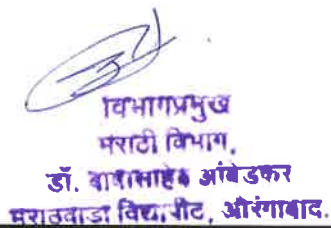 विभागप्रमुख
मराठी विभाग,
डॉ. बाबासाहेब आंबेडकर
मराठवाडा विद्यापीठ, औरंगाबाद.